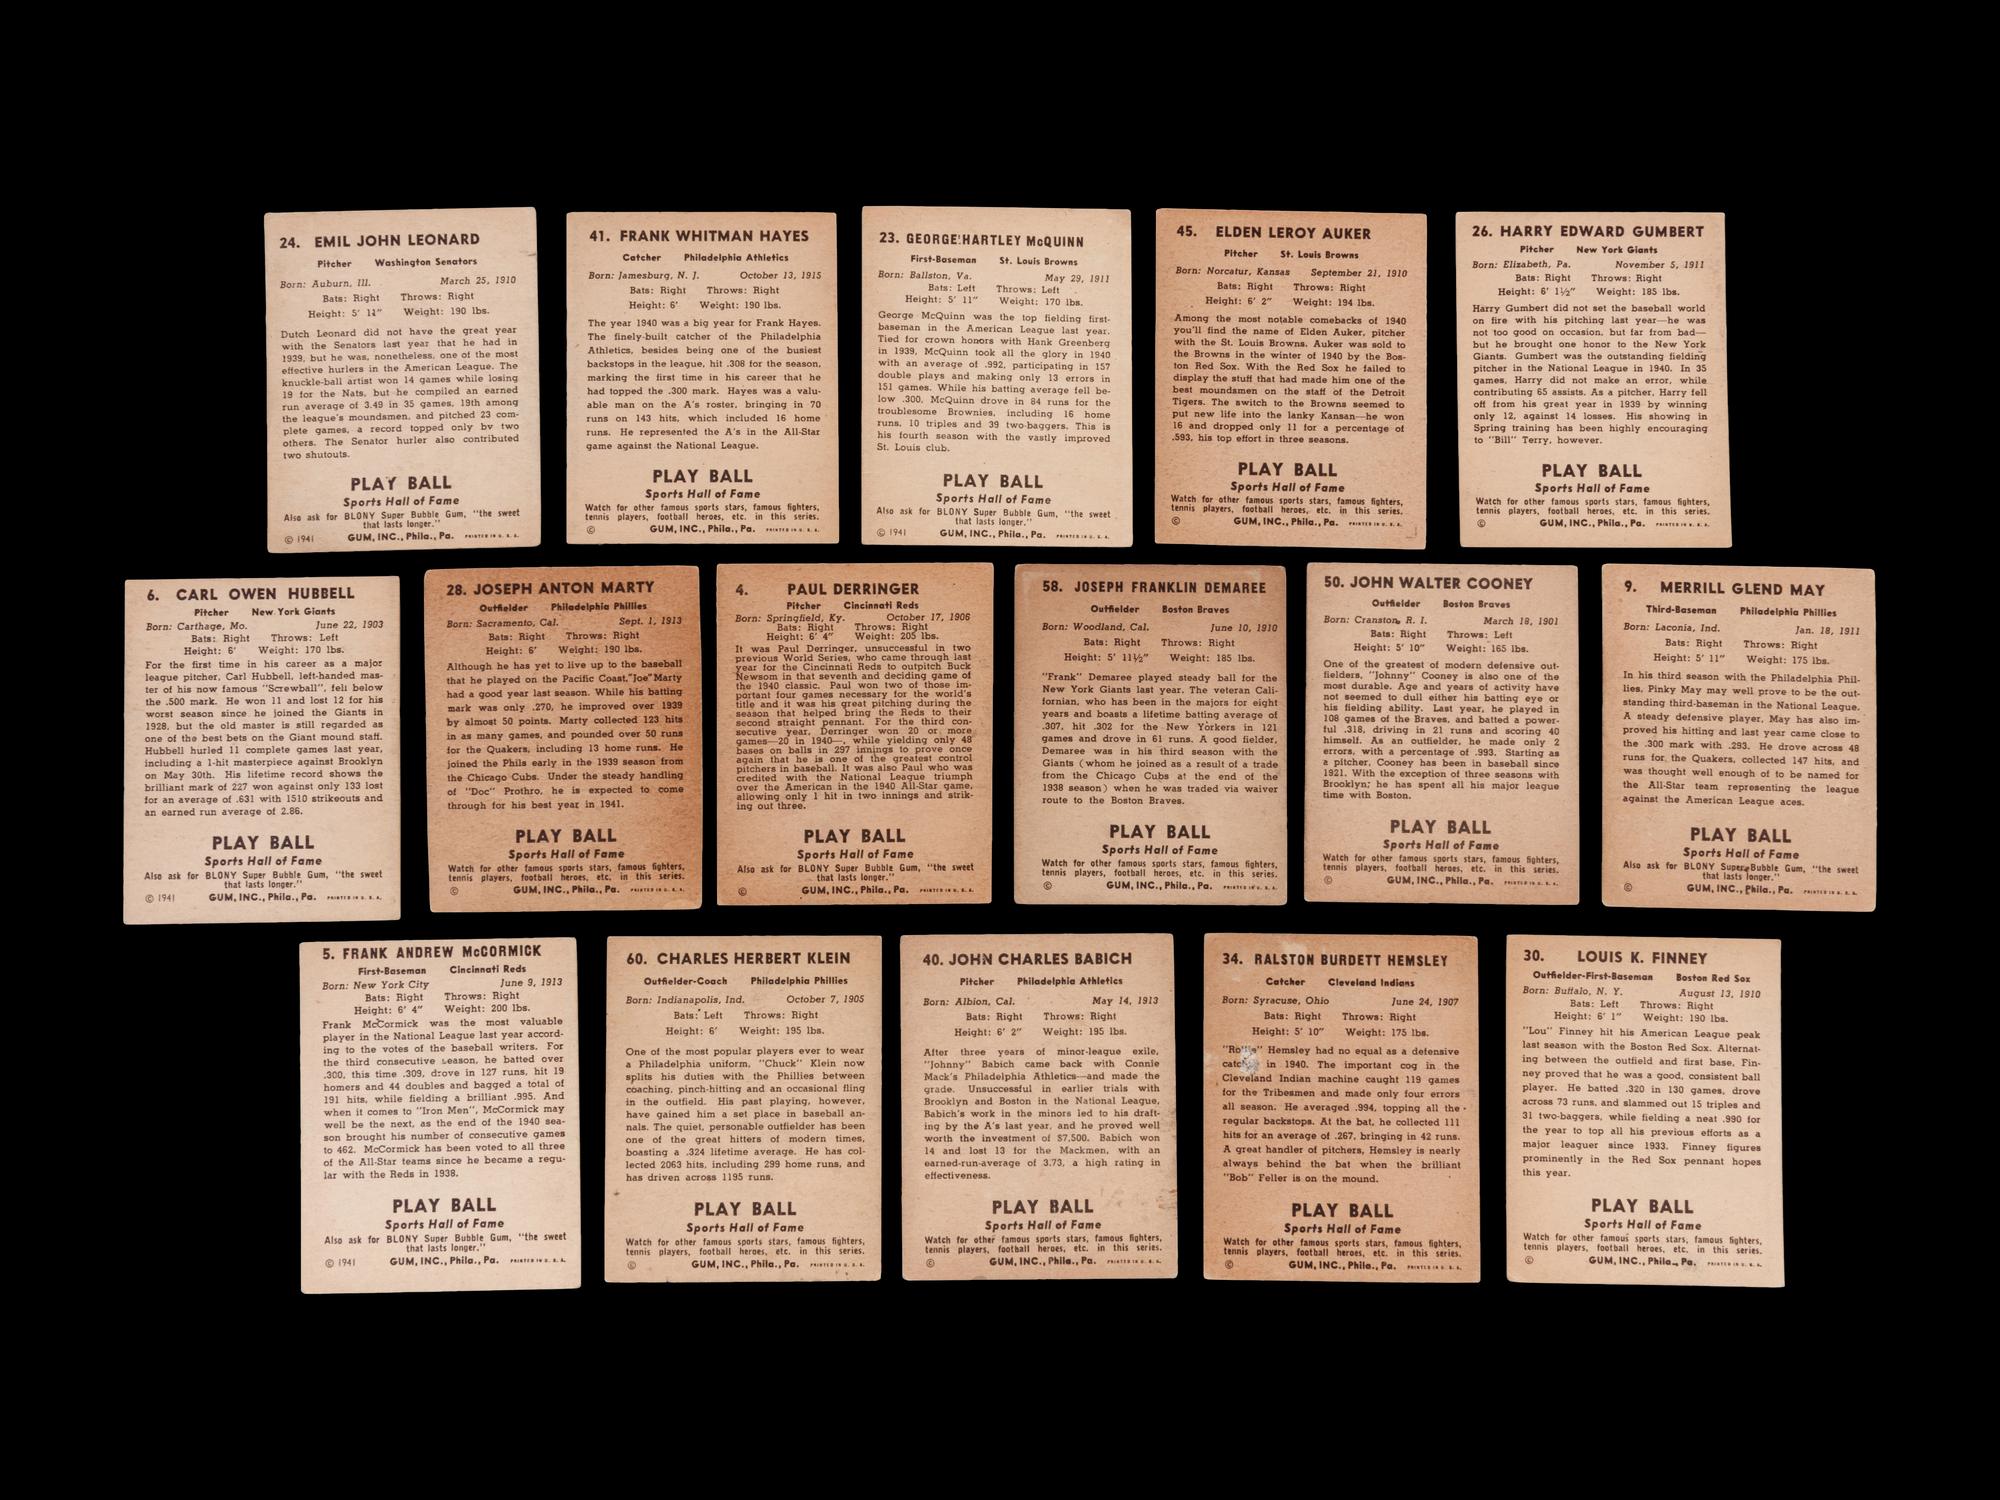 24. EMIL JOHN LEONARD
Pitcher Washington Senators
Born: Auburn, Ill. March 25, 1910
Bats: Right Throws: Right
Height: 5' 11" Weight: 190 lbs.
Dutch Leonard did not have the great year
with the Senators last year that he had in
1939, but he was, nonetheless, one of the most
effective hurlers in the American League. The
knuckle-ball artist won 14 games while losing
19 for the Nats, but he compiled an earned
run average of 3.49 in 35 games, 19th among
the league's moundsmen, and pitched 23 com-
plete games, a record topped only by two
others. The Senator hurler also contributed
two shutouts.
PLAY BALL
Sports Hall of Fame
Also ask for BLONY Super Bubble Gum, "the sweet
that lasts longer."
© 1941 GUM, INC., Phila., Pa. PRINTED IN U. S. A.
41. FRANK WHITMAN HAYES
Catcher Philadelphia Athletics
Born: Jamesburg, N. J. October 13, 1915
Bats: Right Throws: Right
Height: 6' Weight: 190 lbs.
The year 1940 was a big year for Frank Hayes.
The finely-built catcher of the Philadelphia
Athletics, besides being one of the busiest
backstops in the league, hit .308 for the season,
marking the first time in his career that he
had topped the .300 mark. Hayes was a valu-
able man on the A's roster, bringing in 70
runs on 143 hits, which included 16 home
runs. He represented the A's in the All-Star
game against the National League.
PLAY BALL
Sports Hall of Fame
Watch for other famous sports stars, famous fighters,
tennis players, football heroes, etc. in this series.
© GUM, INC., Phila., Pa. PRINTED IN U. S. A.
23. GEORGE HARTLEY McQUINN
First-Baseman St. Louis Browns
Born: Ballston, Va. May 29, 1911
Bats: Left Throws: Left
Height: 5' 11" Weight: 170 lbs.
George McQuinn was the top fielding first-
baseman in the American League last year.
Tied for crown honors with Hank Greenberg
in 1939, McQuinn took all the glory in 1940
with an average of .992, participating in 157
double plays and making only 13 errors in
151 games. While his batting average fell be-
low .300, McQuinn drove in 84 runs for the
troublesome Brownies, including 16 home
runs, 10 triples and 39 two-baggers. This is
his fourth season with the vastly improved
St. Louis club.
PLAY BALL
Sports Hall of Fame
Also ask for BLONY Super Bubble Gum, "the sweet
that lasts longer."
© 1941 GUM, INC., Phila., Pa. PRINTED IN U. S. A.
45. ELDEN LEROY AUKER
Pitcher St. Louis Browns
Born: Norcatur, Kansas September 21, 1910
Bats: Right Throws: Right
Height: 6' 2" Weight: 194 lbs.
Among the most notable comebacks of 1940
you'll find the name of Elden Auker, pitcher
with the St. Louis Browns. Auker was sold to
the Browns in the winter of 1940 by the Bos-
ton Red Sox. With the Red Sox he failed to
display the stuff that had made him one of the
best moundsmen on the staff of the Detroit
Tigers. The switch to the Browns seemed to
put new life into the lanky Kansan—he won
16 and dropped only 11 for a percentage of
.593, his top effort in three seasons.
PLAY BALL
Sports Hall of Fame
Watch for other famous sports stars, famous fighters,
tennis players, football heroes, etc. in this series.
© GUM, INC., Phila., Pa. PRINTED IN U. S. A.
26. HARRY EDWARD GUMBERT
Pitcher New York Giants
Born: Elizabeth, Pa. November 5, 1911
Bats: Right Throws: Right
Height: 6' 1½" Weight: 185 lbs.
Harry Gumbert did not set the baseball world
on fire with his pitching last year—he was
not too good on occasion, but far from bad—
but he brought one honor to the New York
Giants. Gumbert was the outstanding fielding
pitcher in the National League in 1940. In 35
games, Harry did not make an error, while
contributing 65 assists. As a pitcher, Harry fell
off from his great year in 1939 by winning
only 12, against 14 losses. His showing in
Spring training has been highly encouraging
to "Bill" Terry, however.
PLAY BALL
Sports Hall of Fame
Watch for other famous sports stars, famous fighters,
tennis players, football heroes, etc. in this series.
© GUM, INC., Phila., Pa. PRINTED IN U. S. A.
6. CARL OWEN HUBBELL
Pitcher New York Giants
Born: Carthage, Mo. June 22, 1903
Bats: Right Throws: Left
Height: 6' Weight: 170 lbs.
For the first time in his career as a major
league pitcher, Carl Hubbell, left-handed mas-
ter of his now famous "Screwball", fell below
the .500 mark. He won 11 and lost 12 for his
worst season since he joined the Giants in
1928, but the old master is still regarded as
one of the best bets on the Giant mound staff.
Hubbell hurled 11 complete games last year,
including a 1-hit masterpiece against Brooklyn
on May 30th. His lifetime record shows the
brilliant mark of 227 won against only 133 lost
for an average of .631 with 1510 strikeouts and
an earned run average of 2.86.
PLAY BALL
Sports Hall of Fame
Also ask for BLONY Super Bubble Gum, "the sweet
that lasts longer."
© 1941 GUM, INC., Phila., Pa. PRINTED IN U. S. A.
28. JOSEPH ANTON MARTY
Outfielder Philadelphia Phillies
Born: Sacramento, Cal. Sept. 1, 1913
Bats: Right Throws: Right
Height: 6' Weight: 190 lbs.
Although he has yet to live up to the baseball
that he played on the Pacific Coast, "Joe" Marty
had a good year last season. While his batting
mark was only .270, he improved over 1939
by almost 50 points. Marty collected 123 hits
in as many games, and pounded over 50 runs
for the Quakers, including 13 home runs. He
joined the Phils early in the 1939 season from
the Chicago Cubs. Under the steady handling
of "Doc" Prothro, he is expected to come
through for his best year in 1941.
PLAY BALL
Sports Hall of Fame
Watch for other famous sports stars, famous fighters,
tennis players, football heroes, etc. in this series.
© GUM, INC., Phila., Pa. PRINTED IN U. S. A.
4. PAUL DERRINGER
Pitcher Cincinnati Reds
Born: Springfield, Ky. October 17, 1906
Bats: Right Throws: Right
Height: 6' 4" Weight: 205 lbs.
It was Paul Derringer, unsuccessful in two
previous World Series, who came through last
year for the Cincinnati Reds to outpitch Buck
Newsom in that seventh and deciding game of
the 1940 classic. Paul won two of those im-
portant four games necessary for the world's
title and it was his great pitching during the
season that helped bring the Reds to their
second straight pennant. For the third con-
secutive year, Derringer won 20 or more
games—20 in 1940—, while yielding only 48
bases on balls in 297 innings to prove once
again that he is one of the greatest control
pitchers in baseball. It was also Paul who was
credited with the National League triumph
over the American in the 1940 All-Star game,
allowing only 1 hit in two innings and strik-
ing out three.
PLAY BALL
Sports Hall of Fame
Also ask for BLONY Super Bubble Gum, "the sweet
that lasts longer."
© GUM, INC., Phila., Pa. PRINTED IN U. S. A.
58. JOSEPH FRANKLIN DEMAREE
Outfielder Boston Braves
Born: Woodland, Cal. June 10, 1910
Bats: Right Throws: Right
Height: 5' 11½" Weight: 185 lbs.
"Frank" Demaree played steady ball for the
New York Giants last year. The veteran Cali-
fornian, who has been in the majors for eight
years and boasts a lifetime batting average of
.307, hit .302 for the New Yorkers in 121
games and drove in 61 runs. A good fielder,
Demaree was in his third season with the
Giants (whom he joined as a result of a trade
from the Chicago Cubs at the end of the
1938 season) when he was traded via waiver
route to the Boston Braves.
PLAY BALL
Sports Hall of Fame
Watch for other famous sports stars, famous fighters,
tennis players, football heroes, etc. in this series.
© GUM, INC., Phila., Pa. PRINTED IN U. S. A.
50. JOHN WALTER COONEY
Outfielder Boston Braves
Born: Cranston, R. I. March 18, 1901
Bats: Right Throws: Left
Height: 5' 10" Weight: 165 lbs.
One of the greatest of modern defensive out-
fielders, "Johnny" Cooney is also one of the
most durable. Age and years of activity have
not seemed to dull either his batting eye or
his fielding ability. Last year, he played in
108 games of the Braves, and batted a power-
ful .318, driving in 21 runs and scoring 40
himself. As an outfielder, he made only 2
errors, with a percentage of .993. Starting as
a pitcher, Cooney has been in baseball since
1921. With the exception of three seasons with
Brooklyn; he has spent all his major league
time with Boston.
PLAY BALL
Sports Hall of Fame
Watch for other famous sports stars, famous fighters,
tennis players, football heroes, etc. in this series.
© GUM, INC., Phila., Pa. PRINTED IN U. S. A.
9. MERRILL GLEND MAY
Third-Baseman Philadelphia Phillies
Born: Laconia, Ind. Jan. 18, 1911
Bats: Right Throws: Right
Height: 5' 11" Weight: 175 lbs.
In his third season with the Philadelphia Phil-
lies, Pinky May may well prove to be the out-
standing third-baseman in the National League.
A steady defensive player, May has also im-
proved his hitting and last year came close to
the .300 mark with .293. He drove across 48
runs for the Quakers, collected 147 hits, and
was thought well enough of to be named for
the All-Star team representing the league
against the American League aces.
PLAY BALL
Sports Hall of Fame
Also ask for BLONY Super Bubble Gum, "the sweet
that lasts longer."
© GUM, INC., Phila., Pa. PRINTED IN U. S. A.
5. FRANK ANDREW McCORMICK
First-Baseman Cincinnati Reds
Born: New York City June 9, 1913
Bats: Right Throws: Right
Height: 6' 4" Weight: 200 lbs.
Frank McCormick was the most valuable
player in the National League last year accord-
ing to the votes of the baseball writers. For
the third consecutive season, he batted over
.300, this time .309, drove in 127 runs, hit 19
homers and 44 doubles and bagged a total of
191 hits, while fielding a brilliant .995. And
when it comes to "Iron Men", McCormick may
well be the next, as the end of the 1940 sea-
son brought his number of consecutive games
to 462. McCormick has been voted to all three
of the All-Star teams since he became a regu-
lar with the Reds in 1938.
PLAY BALL
Sports Hall of Fame
Also ask for BLONY Super Bubble Gum, "the sweet
that lasts longer."
© 1941 GUM, INC., Phila., Pa. PRINTED IN U. S. A.
60. CHARLES HERBERT KLEIN
Outfielder-Coach Philadelphia Phillies
Born: Indianapolis, Ind. October 7, 1905
Bats: Left Throws: Right
Height: 6' Weight: 195 lbs.
One of the most popular players ever to wear
a Philadelphia uniform, "Chuck" Klein now
splits his duties with the Phillies between
coaching, pinch-hitting and an occasional fling
in the outfield. His past playing, however,
have gained him a set place in baseball an-
nals. The quiet, personable outfielder has been
one of the great hitters of modern times,
boasting a .324 lifetime average. He has col-
lected 2063 hits, including 299 home runs, and
has driven across 1195 runs.
PLAY BALL
Sports Hall of Fame
Watch for other famous sports stars, famous fighters,
tennis players, football heroes, etc. in this series.
© GUM, INC., Phila., Pa. PRINTED IN U. S. A.
40. JOHN CHARLES BABICH
Pitcher Philadelphia Athletics
Born: Albion, Cal. May 14, 1913
Bats: Right Throws: Right
Height: 6' 2" Weight: 195 lbs.
After three years of minor-league exile,
"Johnny" Babich came back with Connie
Mack's Philadelphia Athletics—and made the
grade. Unsuccessful in earlier trials with
Brooklyn and Boston in the National League,
Babich's work in the minors led to his draft-
ing by the A's last year, and he proved well
worth the investment of $7,500. Babich won
14 and lost 13 for the Mackmen, with an
earned-run-average of 3.73, a high rating in
effectiveness.
PLAY BALL
Sports Hall of Fame
Watch for other famous sports stars, famous fighters,
tennis players, football heroes, etc. in this series.
© GUM, INC., Phila., Pa. PRINTED IN U. S. A.
34. RALSTON BURDETT HEMSLEY
Catcher Cleveland Indians
Born: Syracuse, Ohio June 24, 1907
Bats: Right Throws: Right
Height: 5' 10" Weight: 175 lbs.
Hemsley had no equal as a defensive
in 1940. The important cog in the
Cleveland Indian machine caught 119 games
for the Tribesmen and made only four errors
all season. He averaged .994, topping all the
regular backstops. At the bat, he collected 111
hits for an average of .267, bringing in 42 runs.
A great handler of pitchers, Hemsley is nearly
always behind the bat when the brilliant
"Bob" Feller is on the mound.
PLAY BALL
Sports Hall of Fame
Watch for other famous sports stars, famous fighters,
tennis players, football heroes, etc. in this series.
© GUM, INC., Phila., Pa. PRINTED IN U. S. A.
30. LOUIS K. FINNEY
Outfielder-First-Baseman Boston Red Sox
Born: Buffalo, N. Y. August 13, 1910
Bats: Left Throws: Right
Height: 6' 1" Weight: 190 lbs.
"Lou" Finney hit his American League peak
last season with the Boston Red Sox. Alternat-
ing between the outfield and first base, Fin-
ney proved that he was a good, consistent ball
player. He batted .320 in 130 games, drove
across 73 runs, and slammed out 15 triples and
31 two-baggers, while fielding a neat .990 for
the year to top all his previous efforts as a
major leaguer since 1933. Finney figures
prominently in the Red Sox pennant hopes
this year.
PLAY BALL
Sports Hall of Fame
Watch for other famous sports stars, famous fighters,
tennis players, football heroes, etc. in this series.
© GUM, INC., Phila., Pa. PRINTED IN U. S. A.